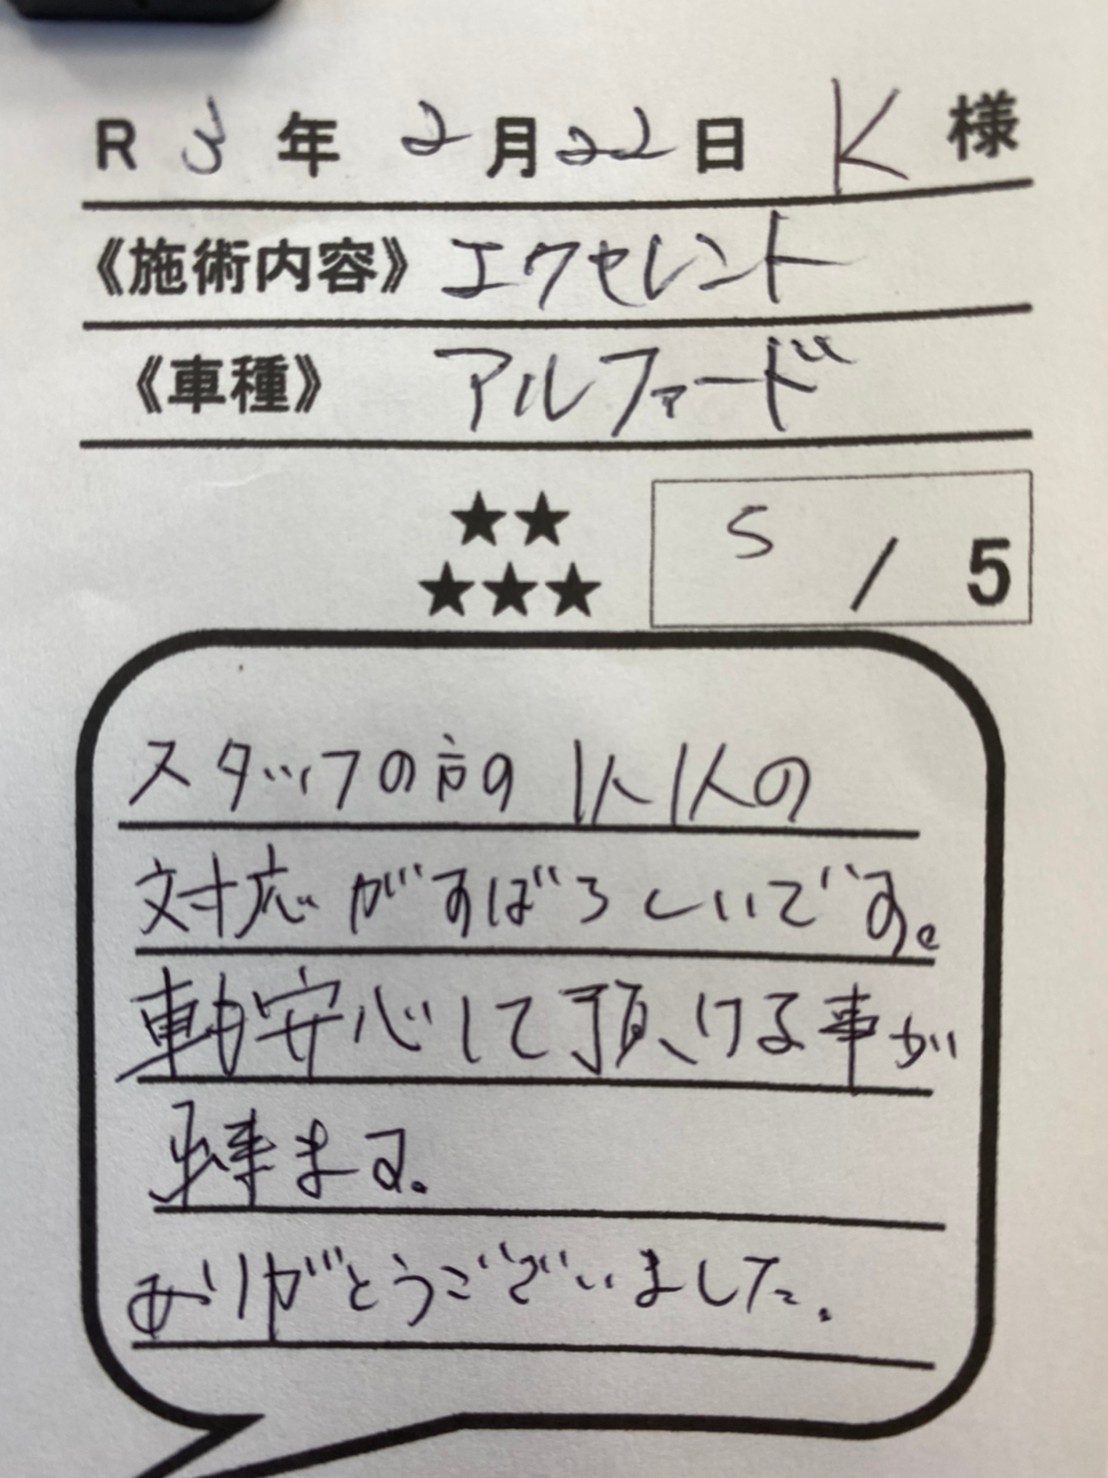 R 3 年 2 月 22 日 K 様
《施術内容》 エクセレント
《車種》 アルファード
★★
★★★
5 / 5
スタッフの方の 1人1人の
対応がすばらしいです。
車も安心して頂ける事が
出来ます。
ありがとうございました。